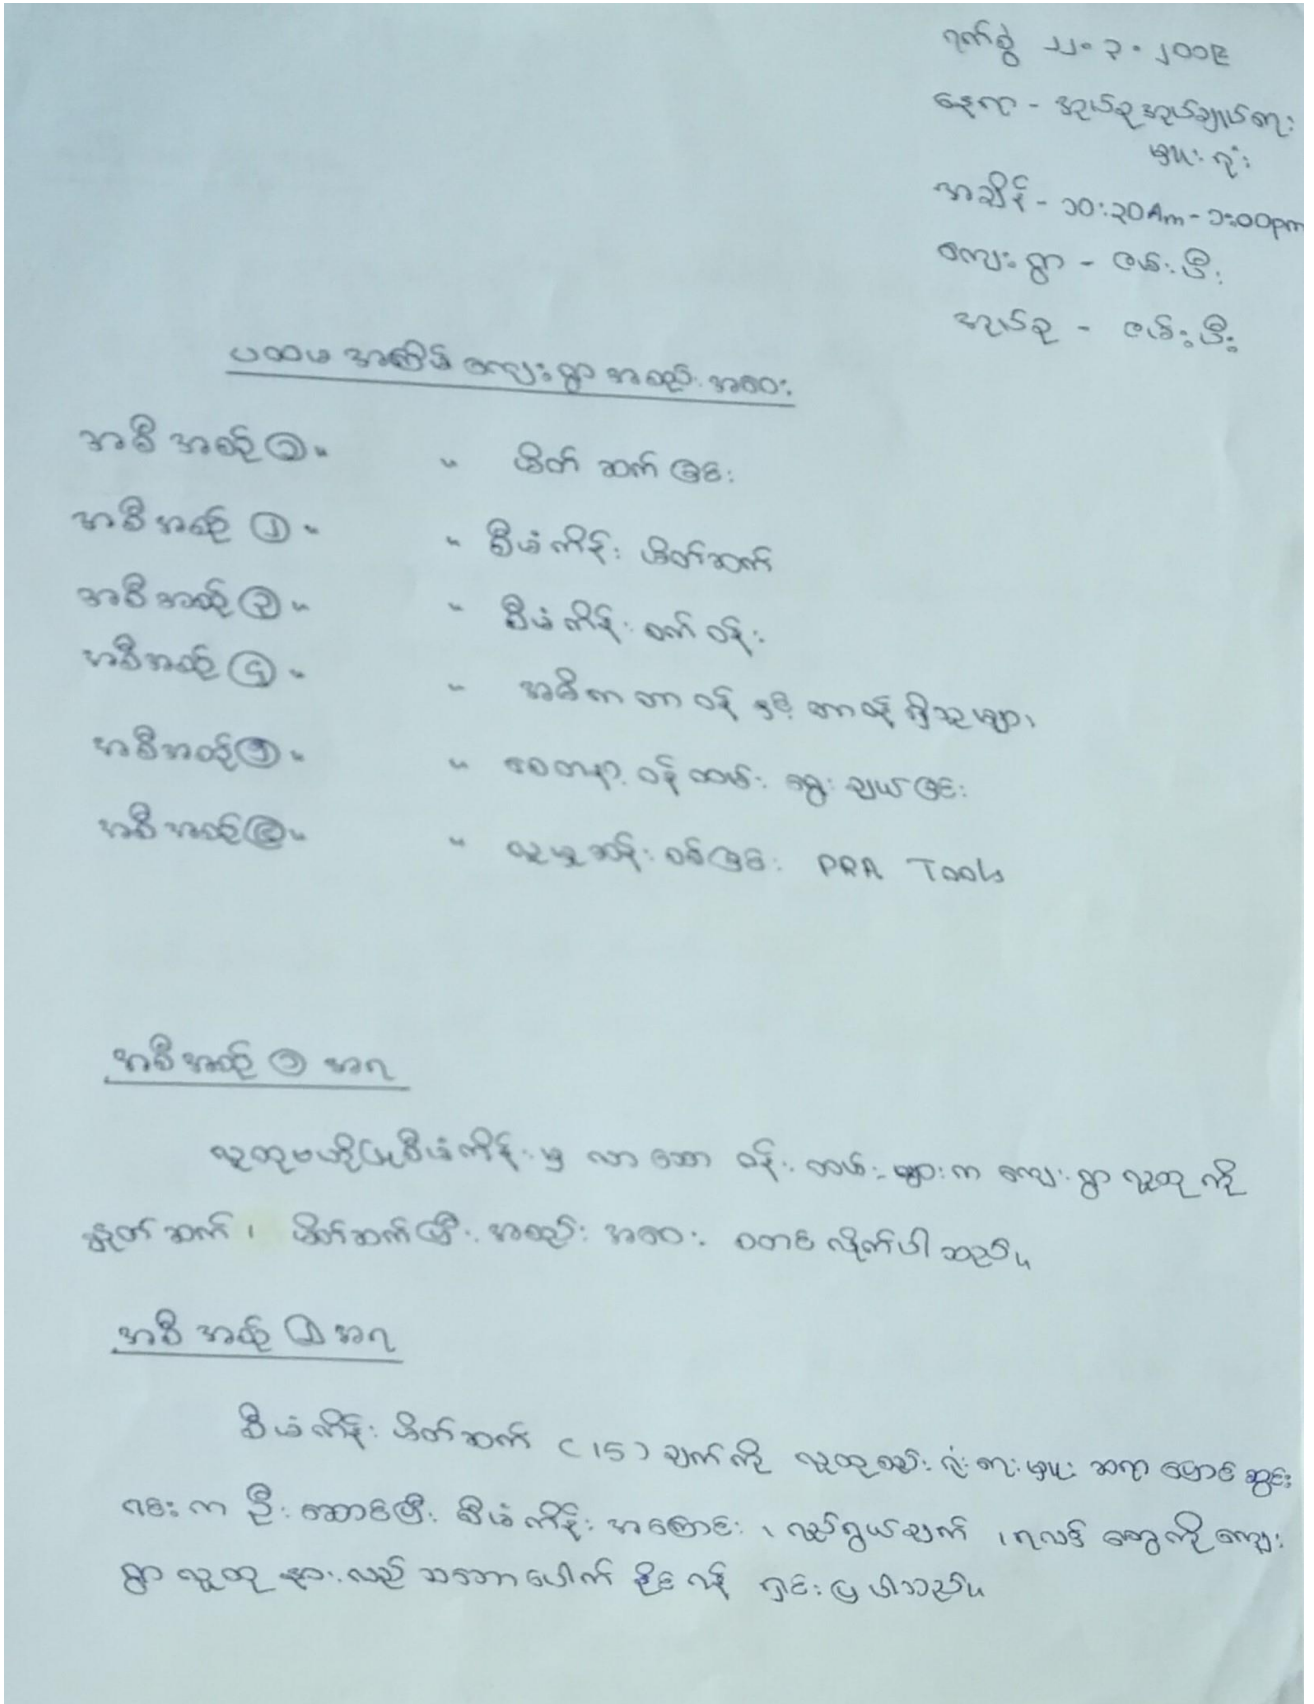 ရက်စွဲ ၂၂.၃.၂၀၁၉
နေရာ - အုပ်စုအုပ်ချုပ်ရေး
မှူးရုံး
အချိန် - ၁၀:၃၀Am - ၁:၀၀pm
ကျေးရွာ - ငမ်းဖီး
အုပ်စု - ငမ်းဖီး
ပထမအကြိမ် ကျေးရွာအစည်းအဝေး
အစီအစဉ် ၁။ ။ မိတ်ဆက်ခြင်း
အစီအစဉ် ၂။ ။ စီမံကိန်း မိတ်ဆက်
အစီအစဉ် ၃။ ။ စီမံကိန်း စက်ဝန်း
အစီအစဉ် ၄။ ။ အဓိကတာဝန် နှင့် တာဝန်ရှိသူများ
အစီအစဉ် ၅။ ။ စေတနာ့ဝန်ထမ်း ရွေးချယ်ခြင်း
အစီအစဉ် ၆။ ။ လူမှုဆန်းစစ်ခြင်း PRA Tools
အစီအစဉ် ၁ အရ
လူထုဗဟိုပြုစီမံကိန်းမှ လာသော ဝန်းထမ်းများက ကျေးရွာလူထုကို
နှုတ်ဆက်၊ မိတ်ဆက်ပြီး အစည်းအဝေး စတင်လိုက်ပါသည်။
အစီအစဉ် ၂ အရ
စီမံကိန်း မိတ်ဆက် (15) ချက်ကို လူထုစည်းရုံးရေးမှူး ဆရာမောင်ဆွင်း
ဂင်းက ဦးဆောင်ပြီး စီမံကိန်း အကြောင်း၊ ရည်ရွယ်ချက်၊ ရလဒ်တွေကို ကျေး
ရွာလူထု နားလည်သဘောပေါက်နိုင်ရန် ရှင်းပြပါသည်။